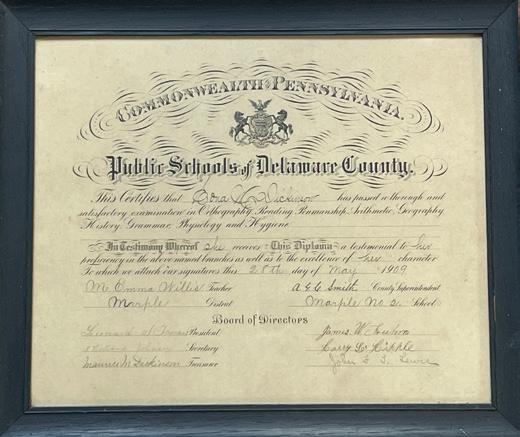 COMMONWEALTH OF PENNSYLVANIA.
Public Schools of Delaware County.
This Certifies that Dickinson has passed a thorough and
satisfactory examination in Orthography, Reading, Penmanship, Arithmetic, Geography,
History, Grammar, Physiology and Hygiene
In Testimony Whereof she receives This Diploma a testimonial to her
proficiency in the above named branches as well as to the excellence of her character
To which we attach our signatures this 28th day of May 1909
M. Emma Willis Teacher A G C Smith County Superintendent
Marple District Marple No 2. School
Board of Directors
Leonard President James W.
Secretary Harry Hipple
Maurice M Dickinson Treasurer John Lewis